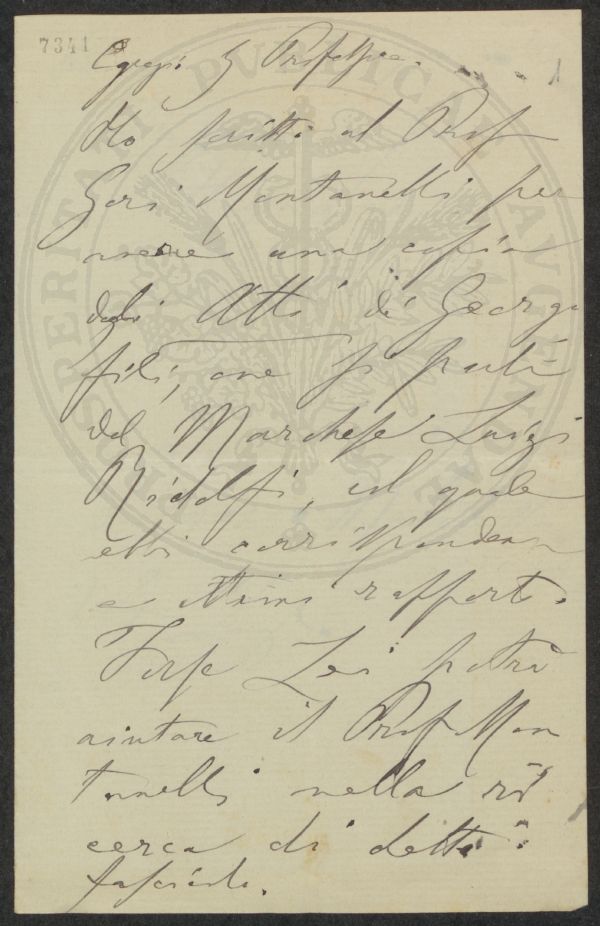 7341
1
Egregi S Professore.
Ho scritto al Prof
Gori Montanelli per
avere una copia
degli Atti dei Georgo
fili, ove si parli
del Marchese Luigi
Ridolfi, col quale
ebbi corrisponden
e ottimi rapporti.
Forse Lei potrà
aiutare il Prof Mon
tanelli nella ri
cerca di detti
fascicoli.
PROSPERITATI PUBLICAE AUGENDAE